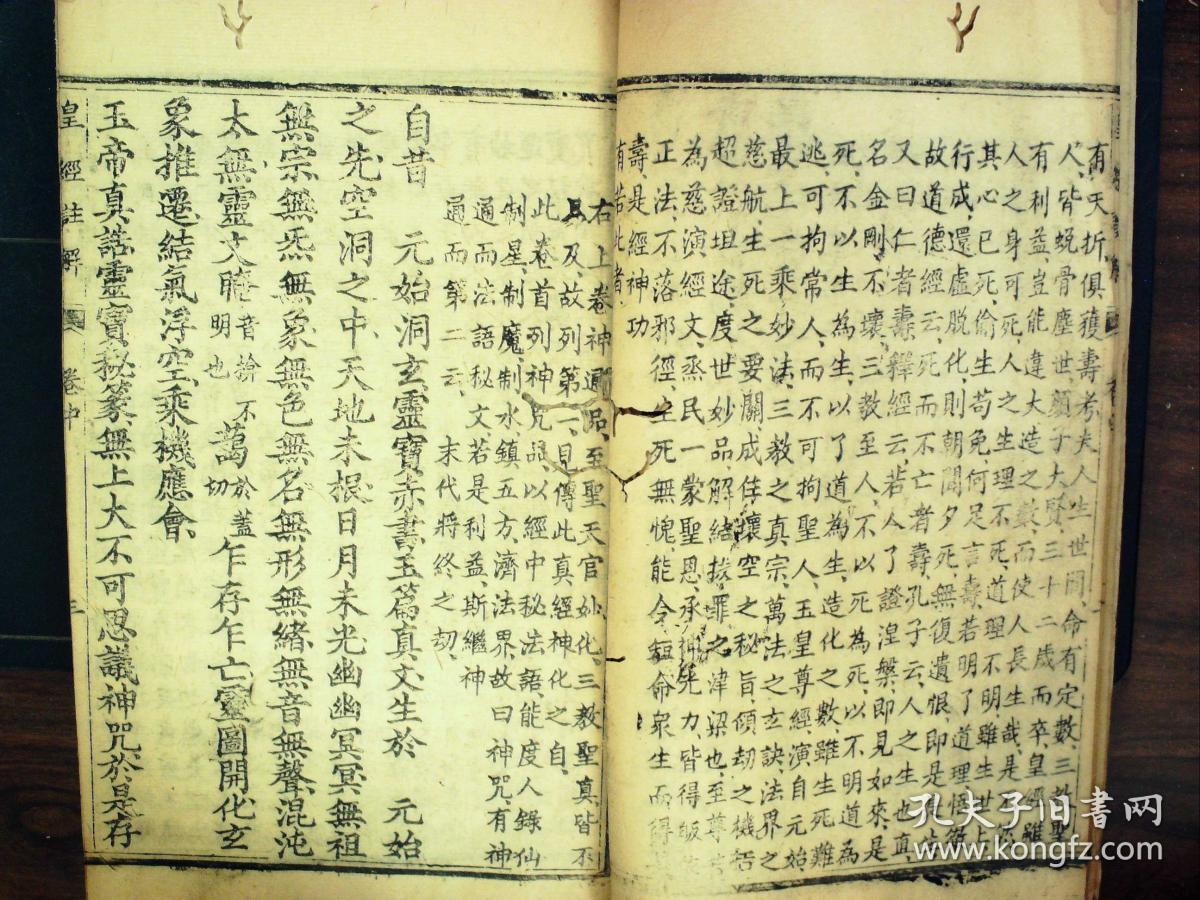 有夭折俱獲壽考夫人生世間命有定數三教聖
人皆蛻骨塵世顏子大賢三十二歲而卒皇經雖
有利益豈能違大造之數而使人長生哉是不
人之身可死人之生理不死道理不明雖生世上
其心已死偷生苟免何足言壽若明了道理悟解
行成還虛脫化則朝聞夕死無復遺恨即是
故道德經云死而不亡者壽孔子云人之生也直
又曰仁者壽釋經云若人了證涅槃即見如來是
名金剛不壞三教至人不以死為死以不明道為
死不以生為生以了道為生造化之數雖生死難
逃可拘常人而不可拘聖人玉皇尊經演自元始
最上一乘妙法三教之真宗萬法之玄訣法界之
慈航生死之要關成住壞空之秘旨傾劫之機
超證坦途度世妙品解結拔罪之津梁也至尊
為慈演經文烝民一蒙聖恩承神力皆得皈
正法不落邪徑生死無愧能令短命眾生而得
壽是經神功
有若此者
右上卷神通品至聖天官妙化三教聖真皆不
及故列第一見傳此真經神化之自
此卷首列神咒品以經中秘法語能度人錄仙
制星制魔制水鎮五方濟法界故曰神咒有神
通而法語秘文若是利益斯繼神
通而第二云 末代將終之劫
自昔 元始洞玄靈寶赤書玉篇真文生於 元始
之先空洞之中天地未根日月未光幽幽冥冥無祖
無宗無炁無象無色無名無形無緒無音無聲混沌
太無靈文晻音揜不明也藹於蓋切乍存乍亡靈圖開化玄
象推遷結氣浮空乘機應會
玉帝真誥靈寶秘篆無上大不可思議神咒於是存
皇經註解 卷中 三
孔夫子旧书网
www.kongfz.com